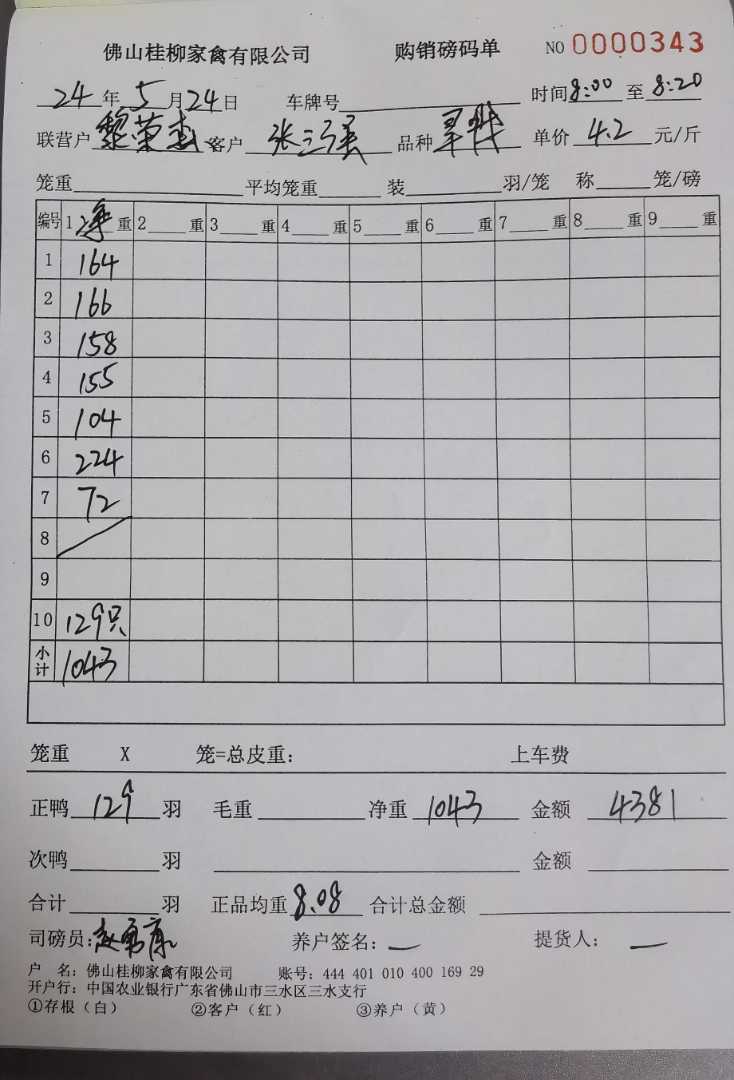 佛山桂柳家禽有限公司 购销磅码单 NO 0000343
24年5月24日 车牌号 时间8:00至8:20
联营户黎荣 客户张三强 品种 单价4.2元/斤
笼重 平均笼重 装 羽/笼 称 笼/磅
编号 1净重 2 重 3 重 4 重 5 重 6 重 7 重 8 重 9 重
1 164
2 166
3 158
4 155
5 104
6 224
7 72
8
9
10 129只
小计 1043
笼重 X 笼=总皮重: 上车费
正鸭129羽 毛重 净重1043 金额4381
次鸭 羽 金额
合计 羽 正品均重8.08 合计总金额
司磅员:赵勇康 养户签名: 提货人:
户 名: 佛山桂柳家禽有限公司 账号: 444 401 010 400 169 29
开户行: 中国农业银行广东省佛山市三水区三水支行
①存根(白) ②客户(红) ③养户(黄)